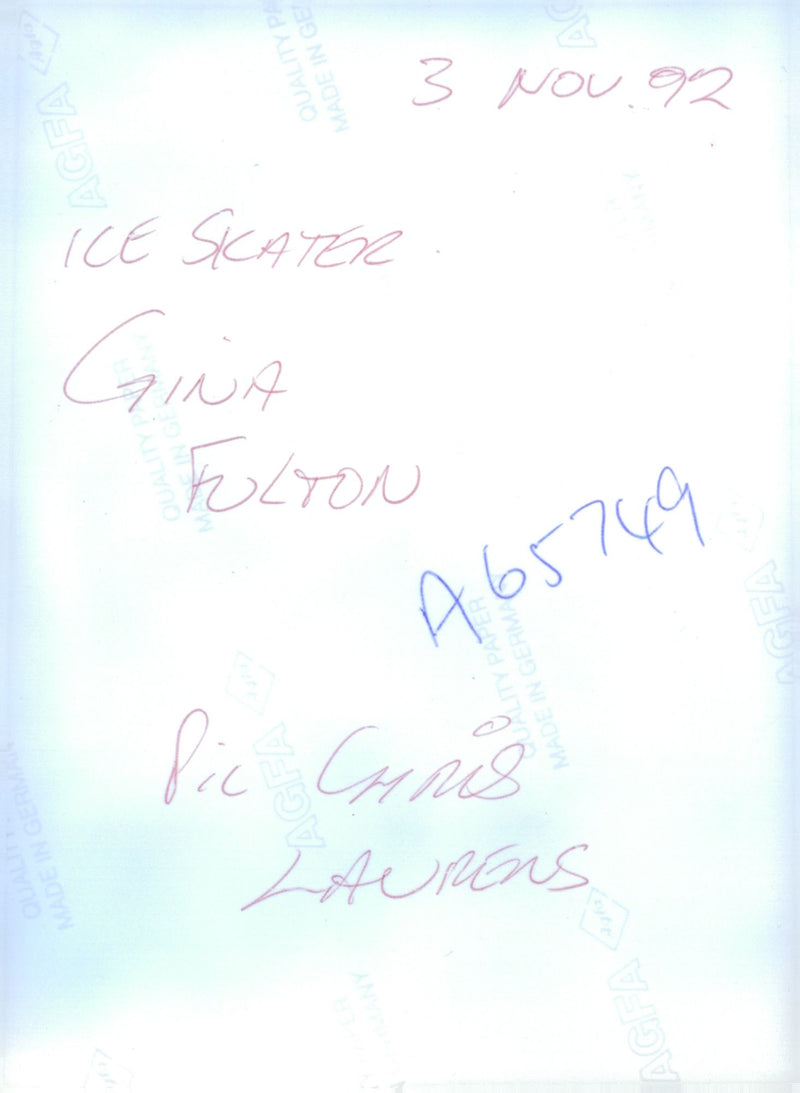 3 NOV. 92
ICE SKATER
GINA
FULTON
A65749
PIC CHRIS
LAURENS
AGFA
QUALITY PAPER
MADE IN GERMANY
AGFA
QUALITY PAPER
MADE IN GERMANY
AGFA
QUALITY PAPER
MADE IN GERMANY
AGFA
QUALITY PAPER
MADE IN GERMANY
AGFA